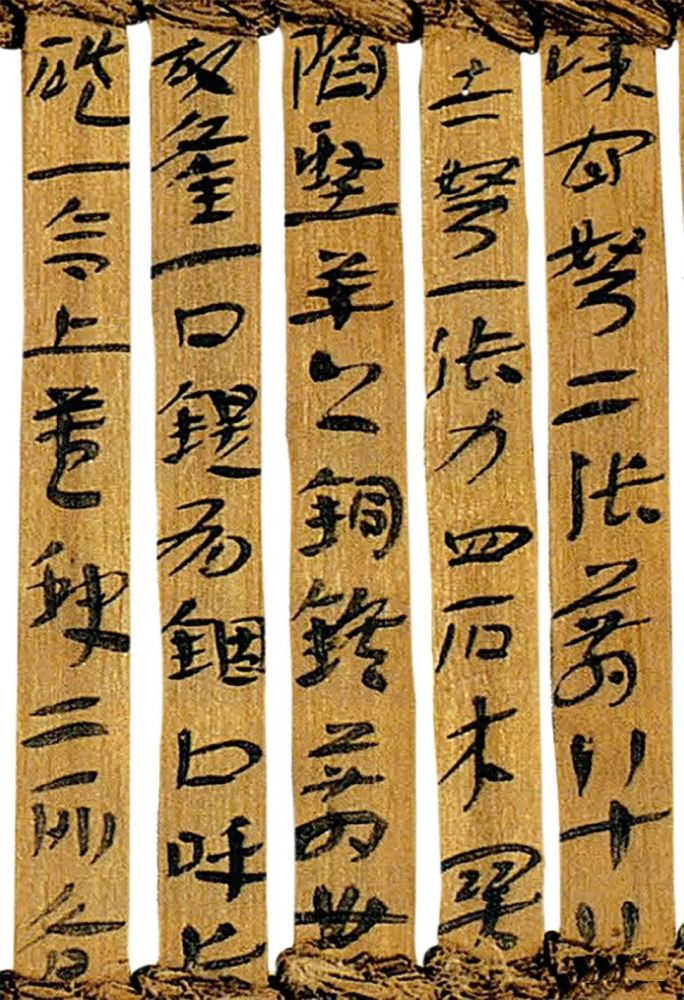 餘官弩二張箭八十八
赤弩一張力四石木關
陷堅羊頭銅鍭箭卅
故釜一口鍉有錮口呼長
磑一合上蓋缺二所各